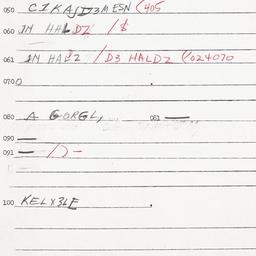 050 CIKAJD3MESN (405
060 IN HALDZ /$
061 IN HALZ /D3 HALDZ (024070
0700
080 A GORGL, 081 —
090 —
091 — /) –
100 KELY3LE .